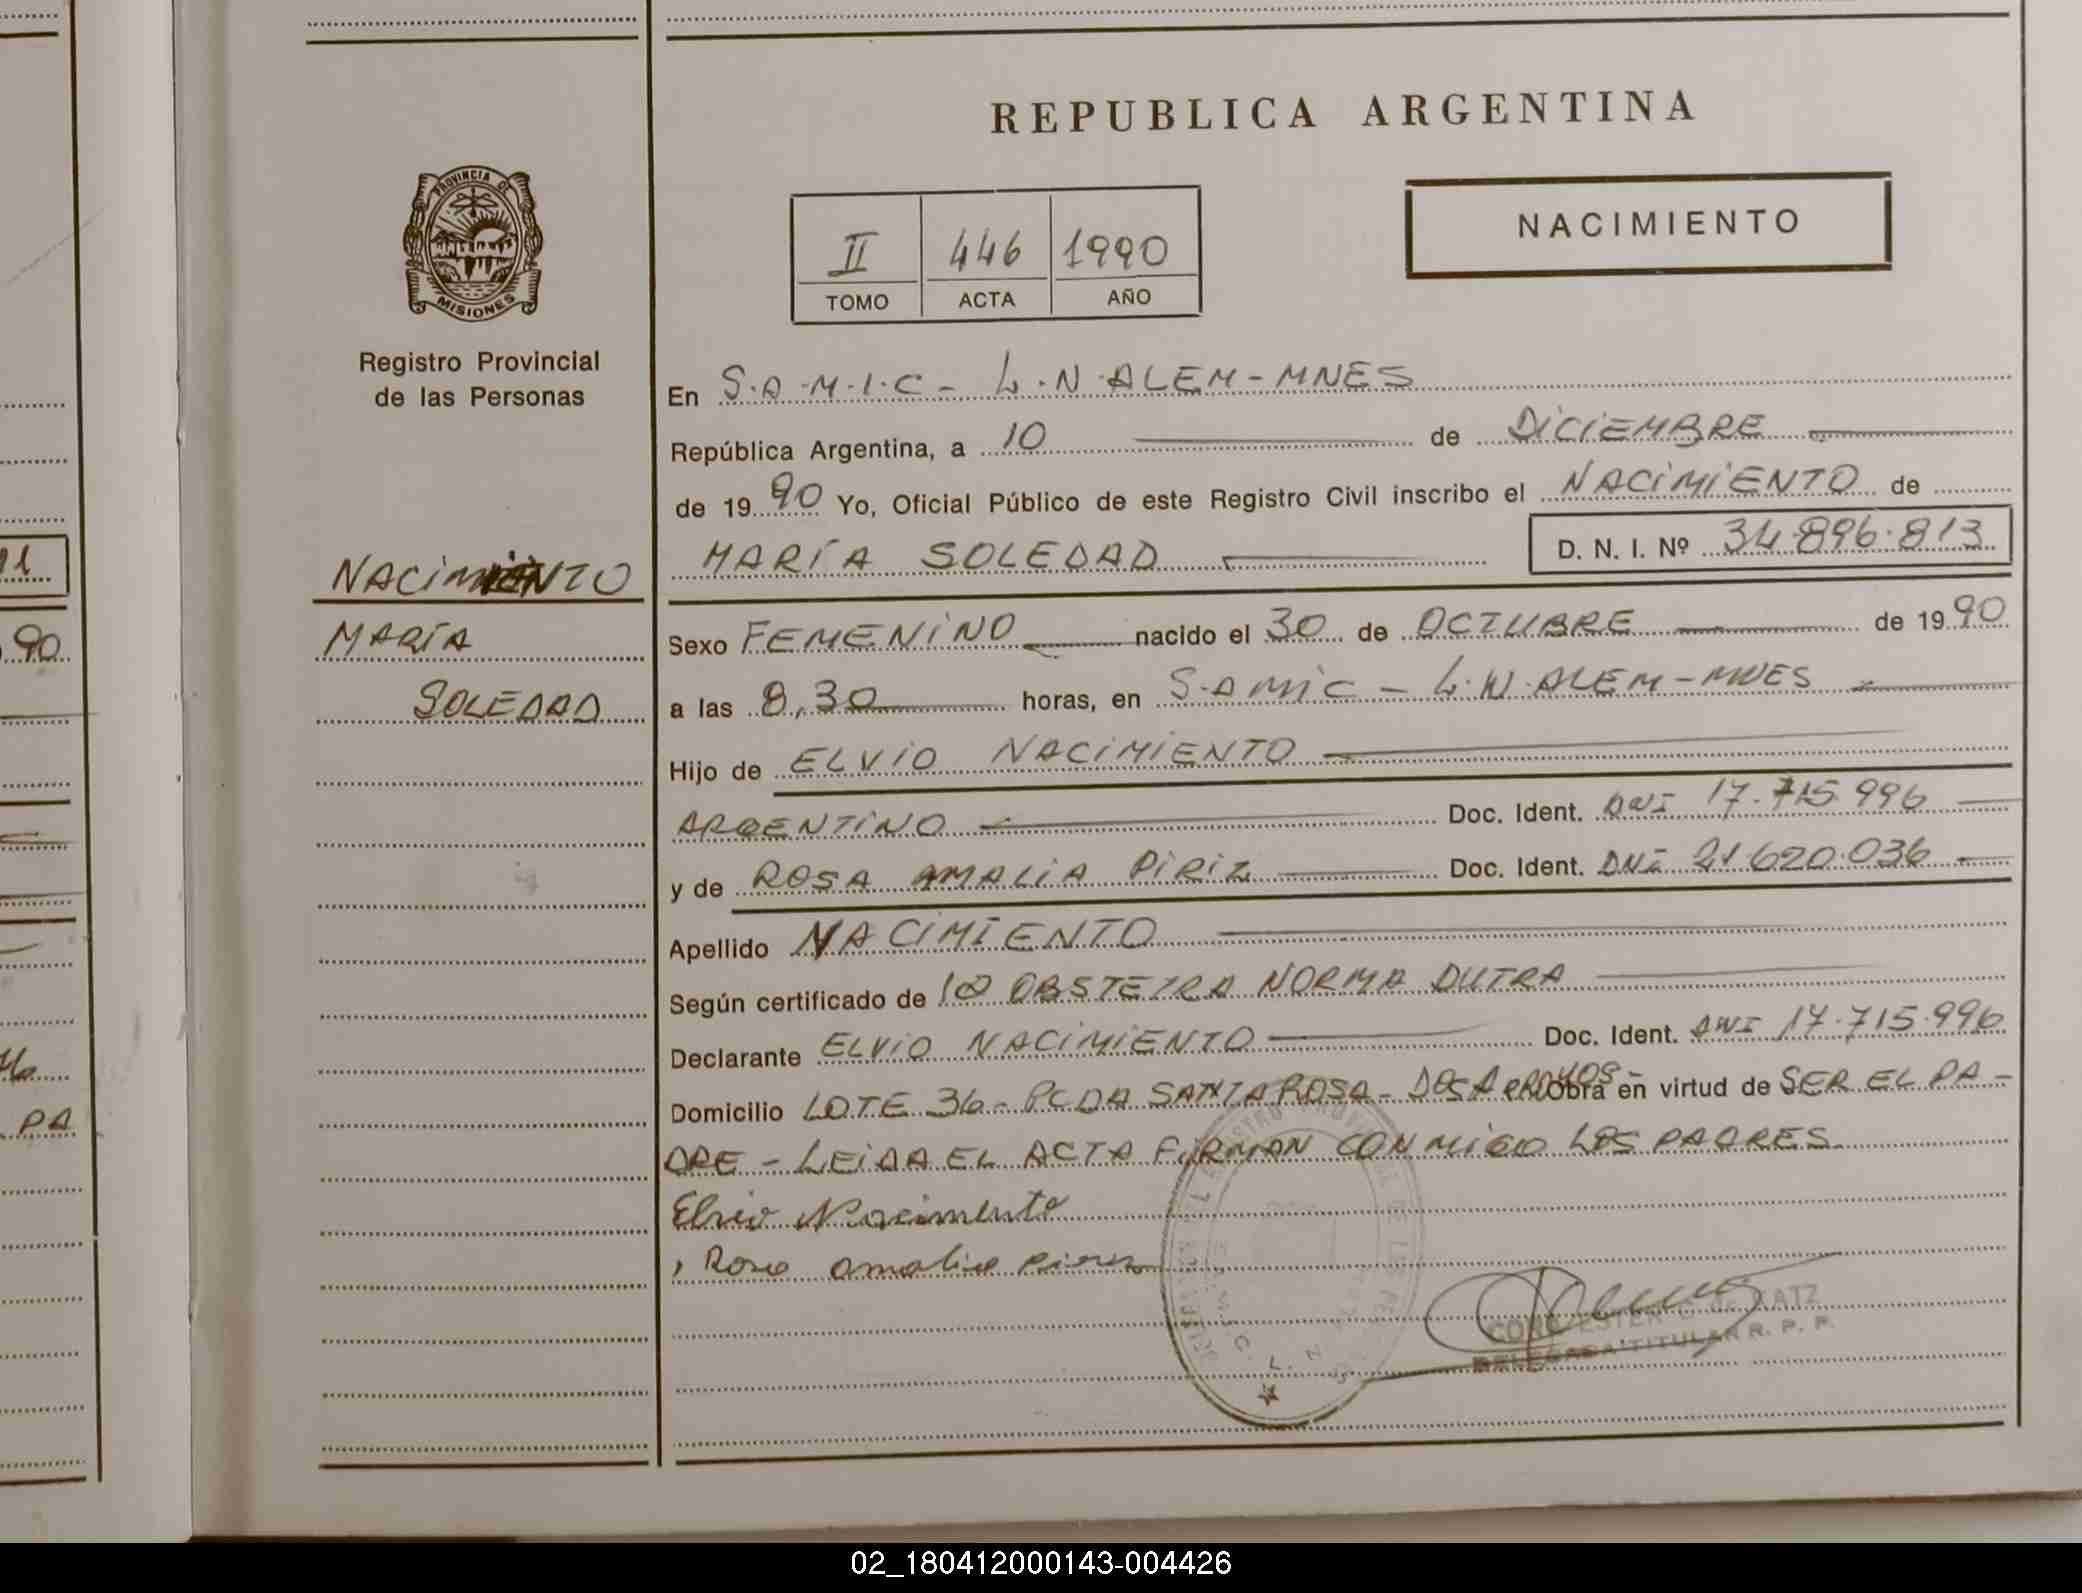 REPUBLICA ARGENTINA
NACIMIENTO
PROVINCIA DE
MISIONES
II 446 1990
TOMO ACTA AÑO
Registro Provincial
de las Personas
NACIMIENTO
MARÍA
SOLEDAD
En S.A.M.I.C - L.N.ALEM-MNES
República Argentina, a 10 de DICIEMBRE
de 1990 Yo, Oficial Público de este Registro Civil inscribo el NACIMIENTO de
MARÍA SOLEDAD D. N. I. Nº 34.896.813
Sexo FEMENINO nacido el 30 de OCTUBRE de 1990
a las 8,30 horas, en S.A MIC - L.N.ALEM-MNES
Hijo de ELVIO NACIMIENTO
ARGENTINO Doc. Ident. DNI 17.715.996
y de ROSA AMALIA PIRIZ Doc. Ident. DNI 21.620.036
Apellido NACIMIENTO
Según certificado de OBSTETRA NORMA DUTRA
Declarante ELVIO NACIMIENTO Doc. Ident. DNI 17.715.996
Domicilio LOTE 36 - PCDA SANTA ROSA - DOS ARROYOS - Obra en virtud de SER EL PA-
DRE - LEIDA EL ACTA FIRMAN CONMIGO LOS PADRES
Elvio Nacimento
Rosa amalia
DELEGADA TITULAR R. P. P.
11
90
PA
02_180412000143-004426